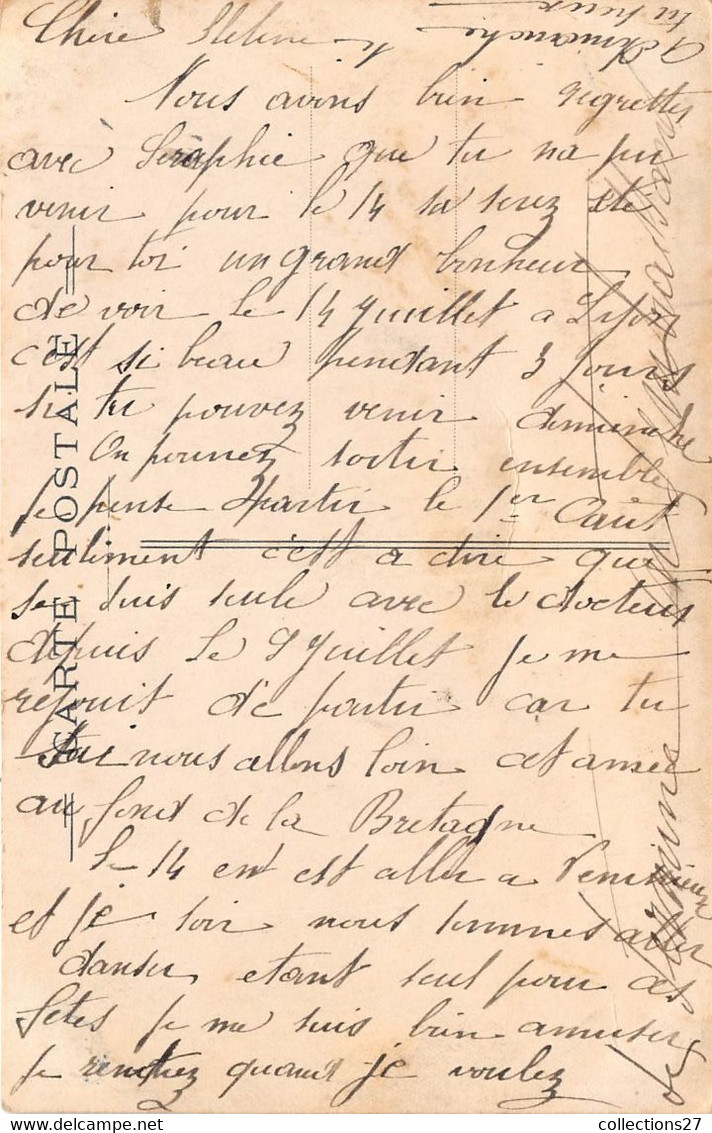 Chère Hélène
Nous avons bien regretter
avec Séraphie que tu na pu
venir pour le 14 sa serez été
pour toi un grand bonheur
de voir le 14 Juillet a Lyon
c'est si beau pendant 3 jours
si tu pouvez venir dimenche
On pourrez sortir ensemble
Je pense partir le 1er Août
seulement c'est a dire que
je suis seule avec le docteur
depuis le 9 Juillet je me
rejouit de partir car tu
sai nous allons loin cet année
au fond de la Bretagne
Le 14 en est aller a Venissieux
et je soir nous sommes aller
danser etant seul pour des
fetes je me suis bien amuser
je rentrez quand je voulez
CARTE POSTALE
a dimanche
tu peux
collections27